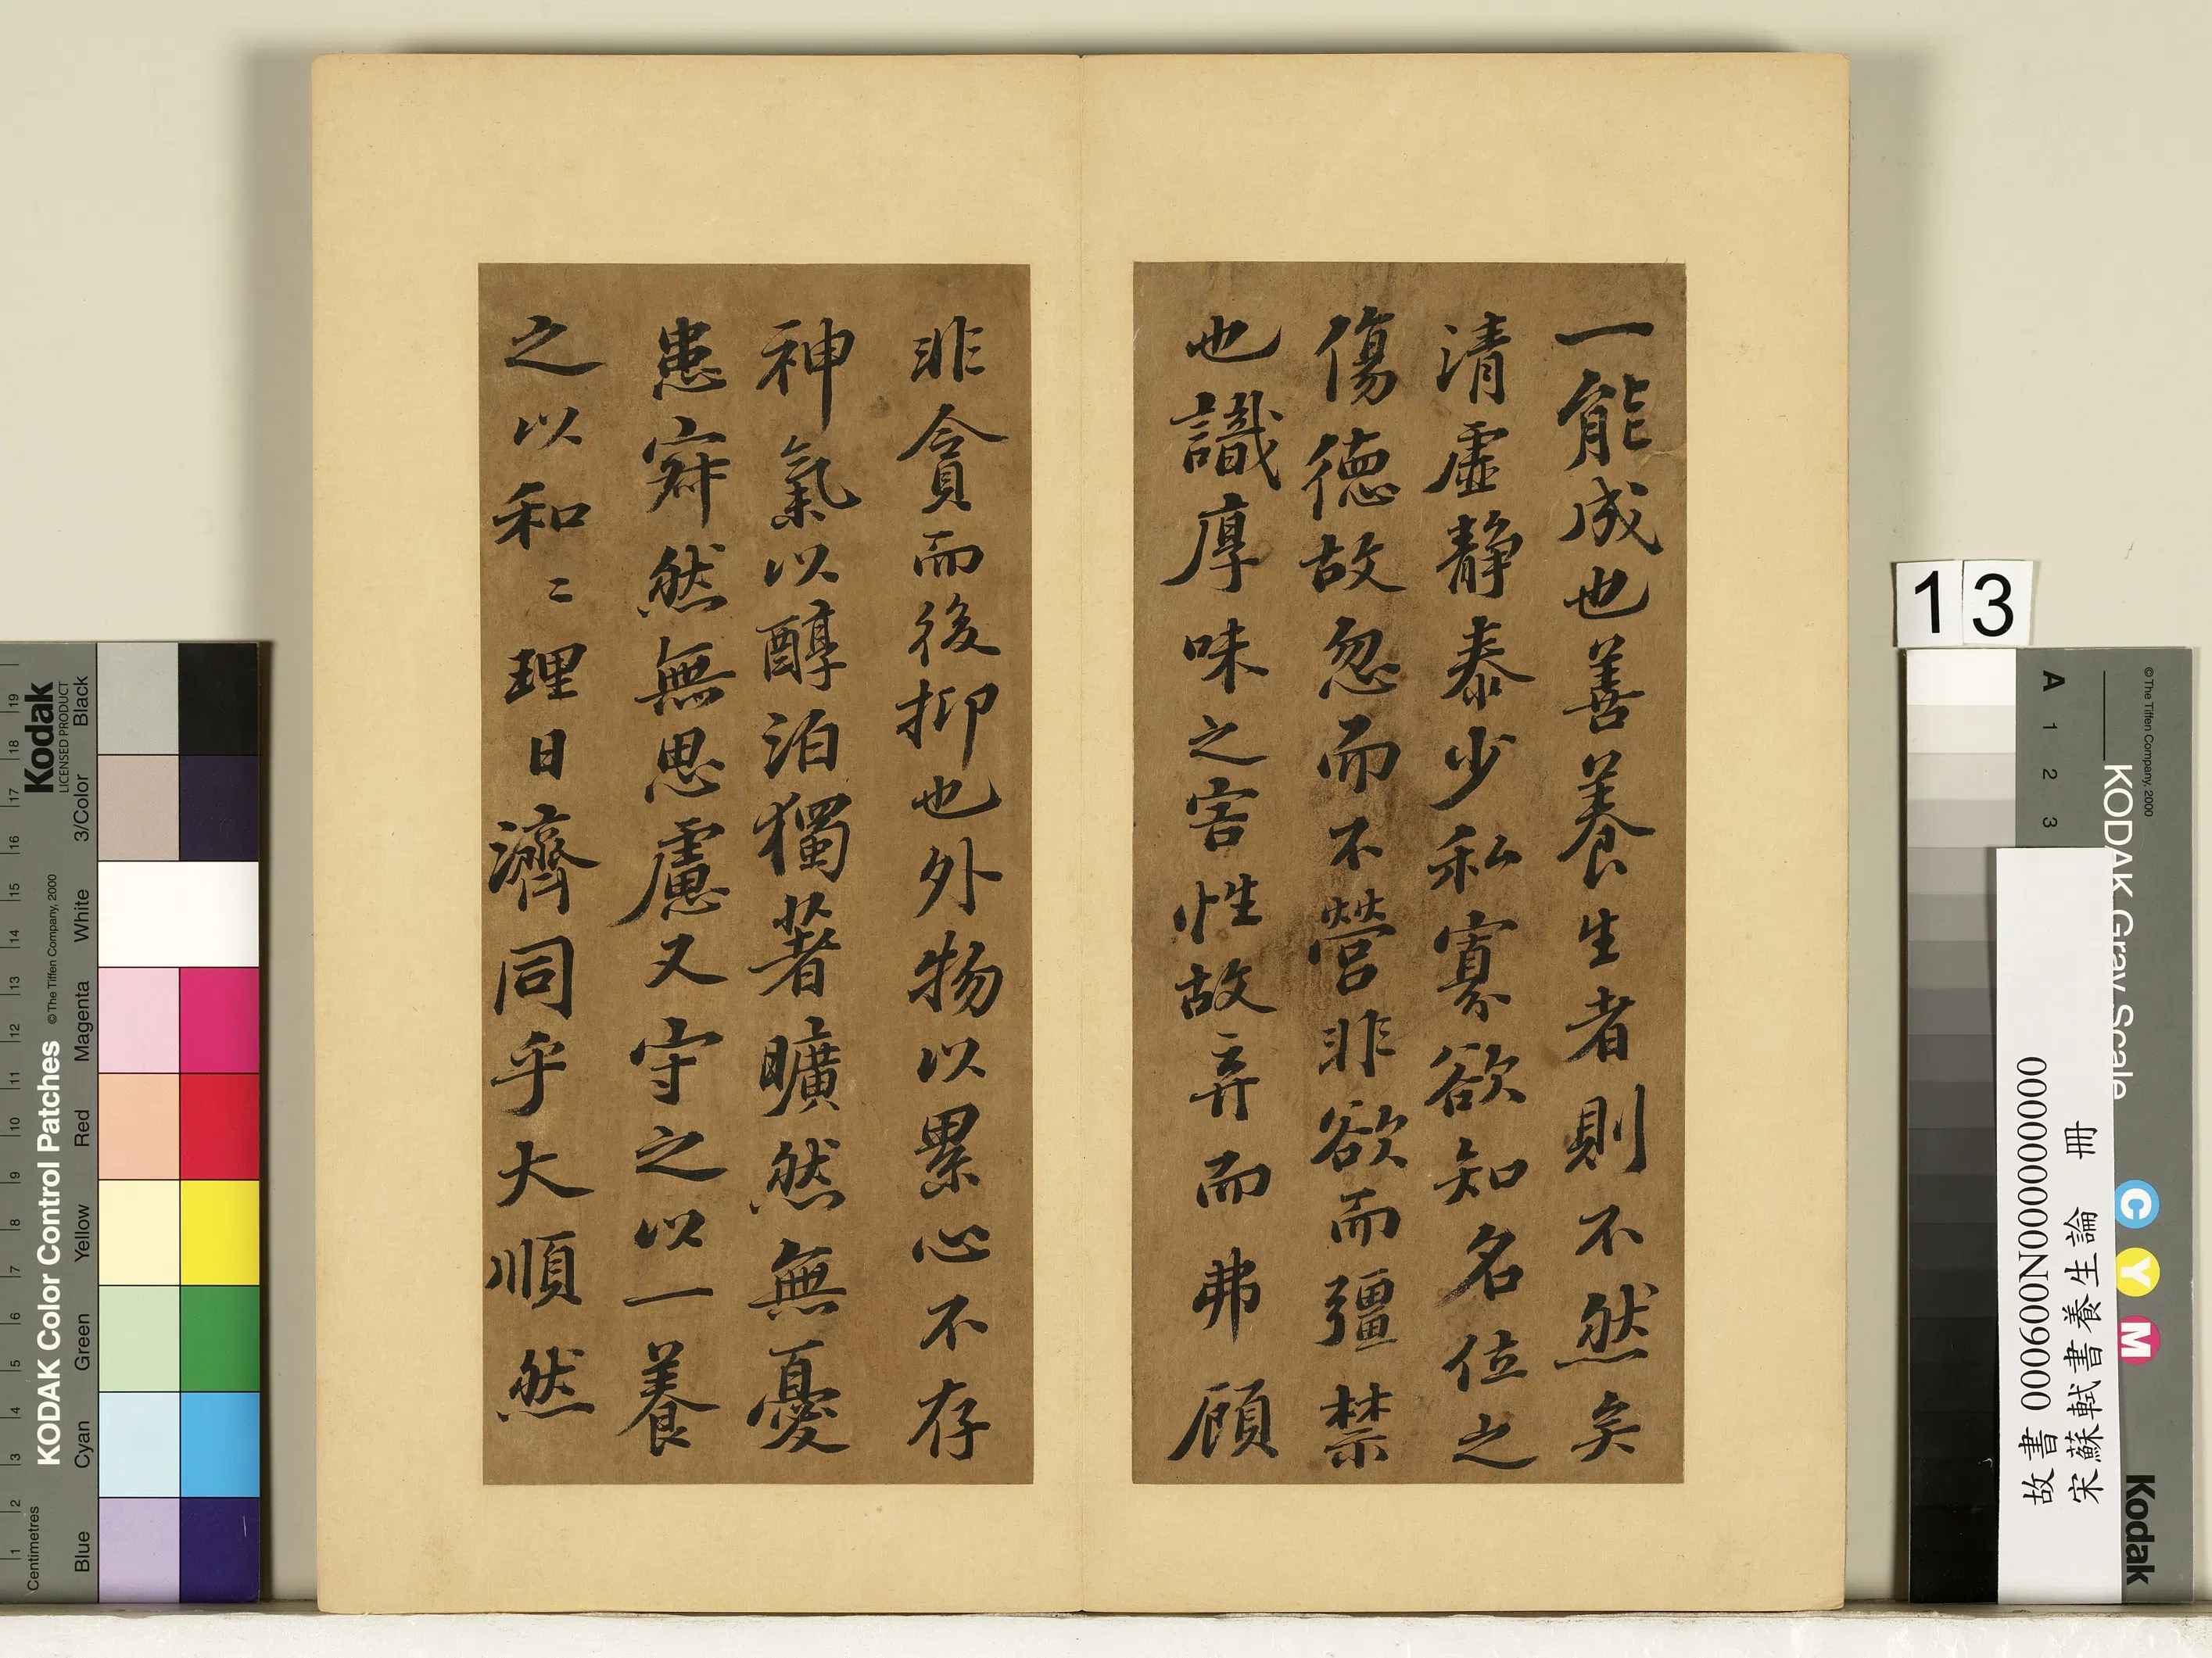 一能成也善養生者則不然矣
清虛静泰少私寡欲知名位之
傷德故忽而不營非欲而彊禁
也識厚味之害性故弃而弗顧
非貪而後抑也外物以累心不存
神氣以醇泊獨著曠然無憂
患寂然無思慮又守之以一養
之以和〻理日濟同乎大順然
13
故書 000600N000000000
宋蘇軾書養生論 冊
KODAK Color Control Patches
© The Tiffen Company, 2000
Kodak
LICENSED PRODUCT
Centimetres
1 2 3 4 5 6 7 8 9 10 11 12 13 14 15 16 17 18 19
Blue Cyan Green Yellow Red Magenta White 3/Color Black
KODAK Gray Scale
© The Tiffen Company, 2000
A 1 2 3
C Y M
Kodak